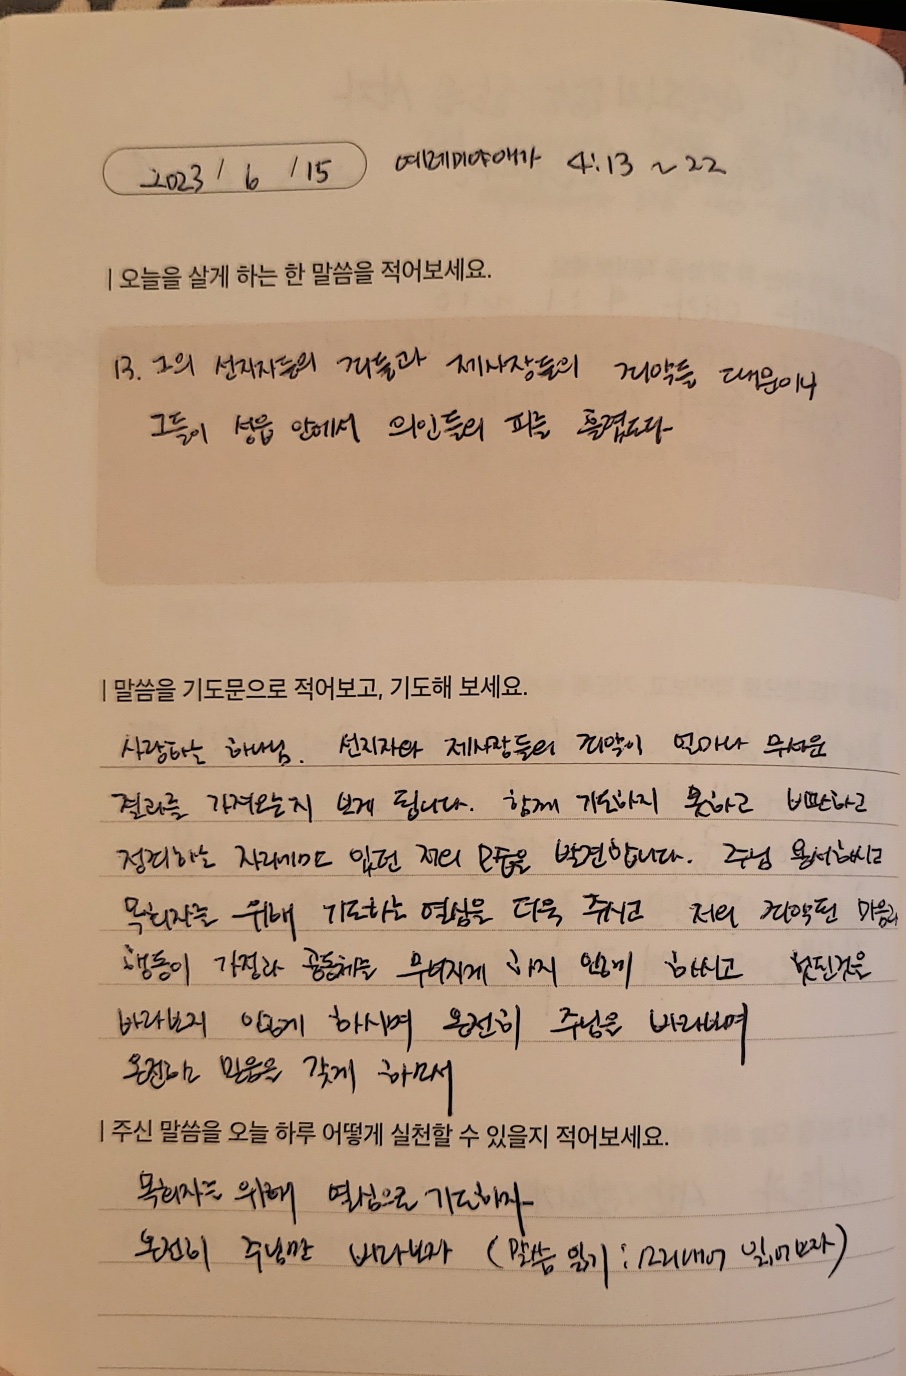 2023 / 6 / 15 예레미야애가 4:13 ~ 22
| 오늘을 살게 하는 한 말씀을 적어보세요.
13. 그의 선지자들의 죄들과 제사장들의 죄악들 때문이니
그들이 성읍 안에서 의인들의 피를 흘렸도다
| 말씀을 기도문으로 적어보고, 기도해 보세요.
사랑하는 하나님. 선지자와 제사장들의 죄악이 얼마나 무서운
결과를 가져오는지 보게 됩니다. 함께 기도하지 못하고 비판하고
정죄하는 자리에만 있던 저의 모습을 발견합니다. 주님 용서하시고
목회자를 위해 기도하는 열심을 더욱 주시고 저의 죄악된 마음과
행동이 가정과 공동체를 무너지게 하지 않게 하시고 헛된것을
바라보지 않게 하시며 온전히 주님을 바라보며
온전한 믿음을 갖게 하소서
| 주신 말씀을 오늘 하루 어떻게 실천할 수 있을지 적어보세요.
목회자를 위해 열심으로 기도하자
온전히 주님만 바라보자 (말씀 읽기 : 소리내어 읽어보자)